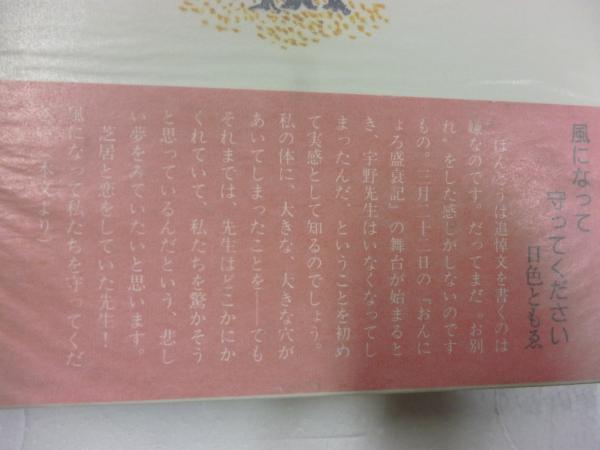 風になって
守ってください
日色ともゑ
ほんとうは追悼文を書くのは
嫌なのです。だってまだ〝お別
れ〟をした感じがしないのです
もの。三月二十二日の『おんに
ょろ盛衰記』の舞台が始まると
き、宇野先生はいなくなってし
まったんだ、ということを初め
て実感として知るのでしょう。
私の体に、大きな、大きな穴が
あいてしまったことを――でも
それまでは、先生はどこかにか
くれていて、私たちを驚かそう
と思っているんだという、悲し
い夢をみていたいと思います。
芝居と恋をしていた先生！
風になって私たちを守ってくだ
さい。（本文より）